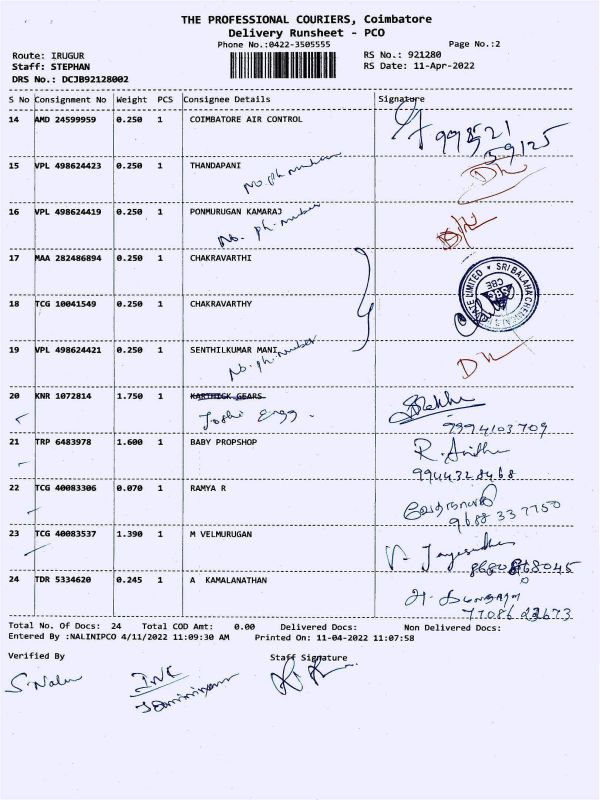 THE PROFESSIONAL COURIERS, Coimbatore
Delivery Runsheet - PCO
Phone No.:0422-3505555 Page No.:2
Route: IRUGUR RS No.: 921280
Staff: STEPHAN RS Date: 11-Apr-2022
DRS No.: DCJB92128002
S No Consignment No Weight PCS Consignee Details Signature
14 AMD 24599959 0.250 1 COIMBATORE AIR CONTROL
15 VPL 498624423 0.250 1 THANDAPANI
No ph number
16 VPL 498624419 0.250 1 PONMURUGAN KAMARAJ
No. ph. number
17 MAA 282486894 0.250 1 CHAKRAVARTHI
SRI BALAHA CHEMICALS
CBE
18 TCG 10041549 0.250 1 CHAKRAVARTHY
19 VPL 498624421 0.250 1 SENTHILKUMAR MANI
No. ph. number
20 KNR 1072814 1.750 1 KARTHICK GEARS
Joshi Engg.
7994103709
21 TRP 6483978 1.600 1 BABY PROPSHOP
9944328468
22 TCG 40083306 0.070 1 RAMYA R
9688337750
23 TCG 40083537 1.390 1 M VELMURUGAN
24 TDR 5334620 0.245 1 A KAMALANATHAN
Total No. Of Docs: 24 Total COD Amt: 0.00 Delivered Docs: Non Delivered Docs:
Entered By :NALINIPCO 4/11/2022 11:09:30 AM Printed On: 11-04-2022 11:07:58
Verified By Staff Signature